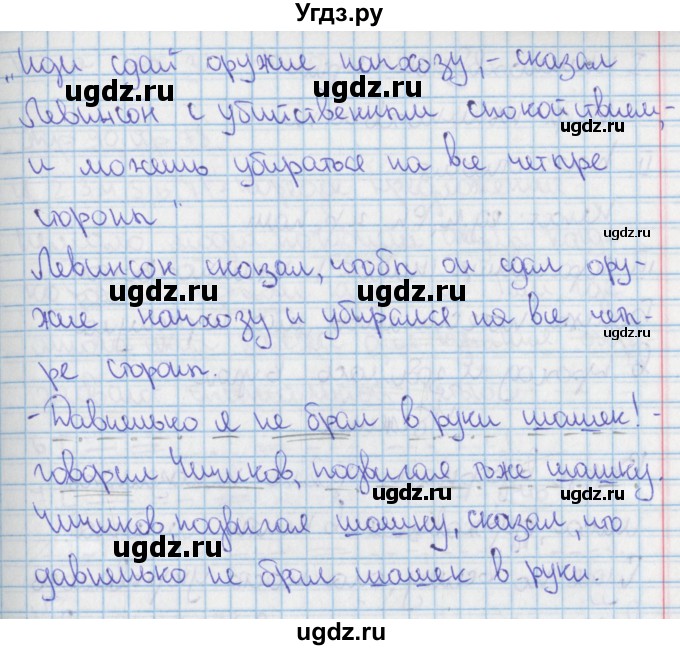 Угдз.ру
„Иди сдай оружие начхозу, - сказал
Левинсон с убийственным спокойствием, -
и можешь убираться на все четыре
стороны"
Левинсон сказал, чтобы он сдал ору-
жие начхозу и убирался на все четы-
ре стороны.
- Давненько я не брал в руки шашек! -
говорил Чичиков, подвигая тоже шашку.
Чичиков, подвигая шашку, сказал, что
давненько не брал шашек в руки.
ugdz.ru
ugdz.ru
ugdz.ru
ugdz.ru
ugdz.ru
ugdz.ru
ugdz.ru
ugdz.ru
ugdz.ru
ugdz.ru
ugdz.ru
ugdz.ru